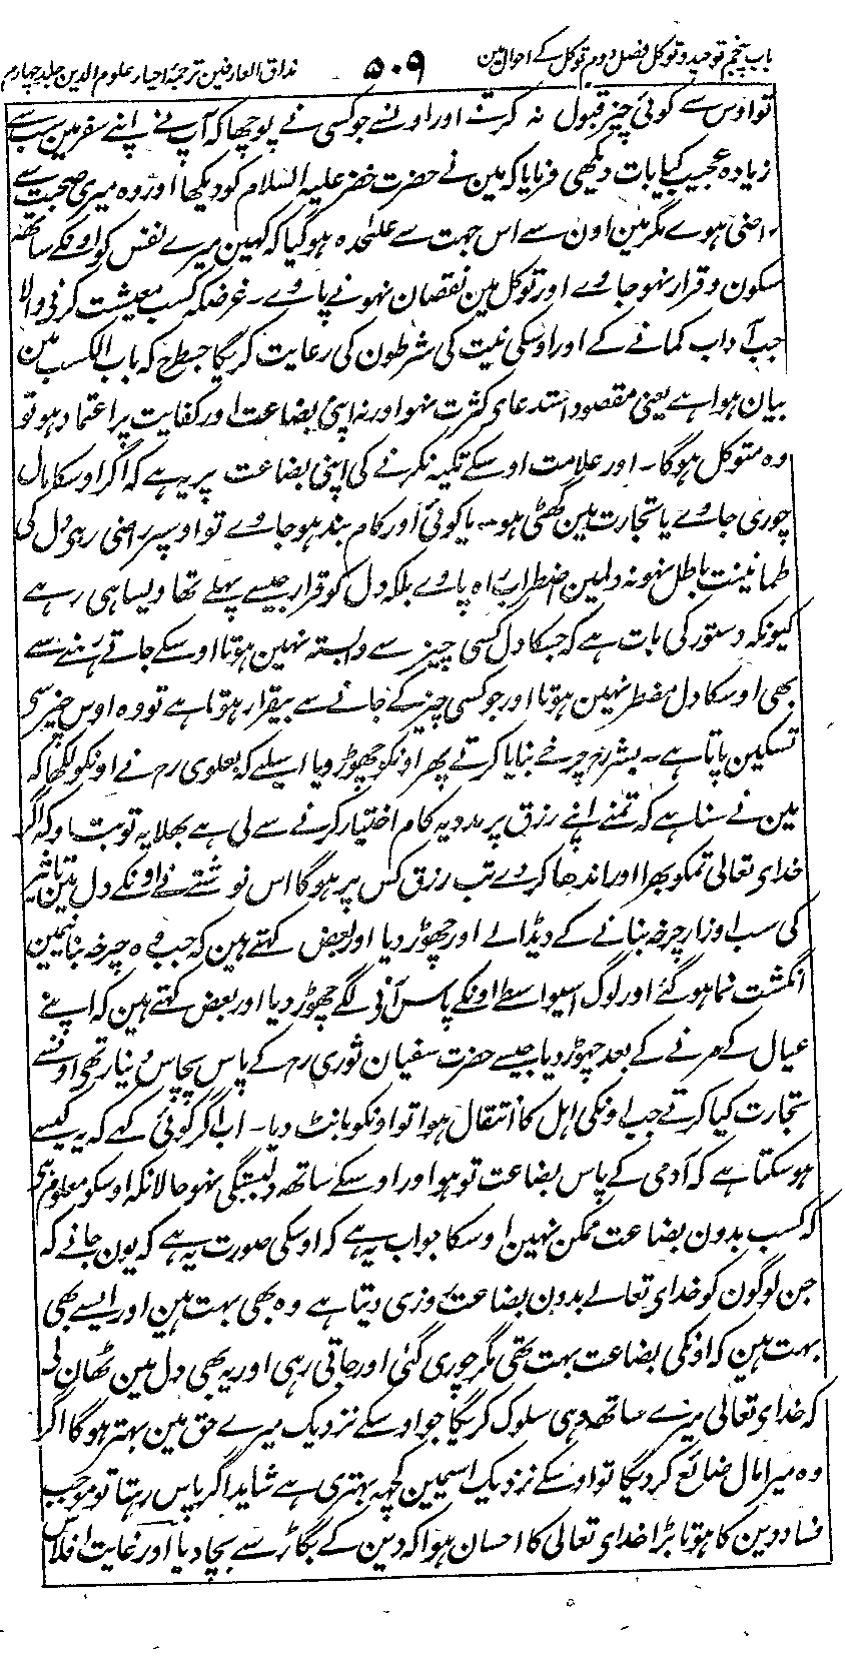 باب پنجم توحید و توکل فصل دوم توکل کے احوال مین ۵۰۹ مذاق العارفین ترجمۂ احیاء علوم الدین جلد چہارم
تو اوس سے کوئی چیز قبول نہ کرتے اور اونسے جو کسی نے پوچھا کہ آپ نے اپنے سفر مین سب سے
زیادہ عجیب کیا بات دیکھی فرمایا کہ مین نے حضرت خضر علیہ السلام کو دیکھا اور وہ میری صحبت سے
راضی ہوے مگر مین اون سے اس جہت سے علیٰحدہ ہو گیا کہ کہین میرے نفس کو اونکے ساتھ
سکون و قرار نہو جاوے اور توکل مین نقصان نہونے پاوے۔ غرضکہ کسب معیشت کرنے والا
جب آداب کمانے کے اور اوسکی نیت کی شرطون کی رعایت کریگا جسطرح کہ باب الکسب مین
بیان ہوا ہے یعنی مقصود استدعای کثرت نہو اور نہ اپنی بضاعت اور کفایت پر اعتماد ہو تو
وہ متوکل ہوگا۔ اور علامت اوسکے تکیہ نکرنے کی اپنی بضاعت پر یہ ہے کہ اگر اوسکا مال
چوری جاوے یا تجارت مین گھٹی ہو۔ یا کوئی اور کام بند ہو جاوے تو اوسپر راضی رہی دل کی
طمانینت باطل نہو نہ دلمین اضطراب راہ پاوے بلکہ دل کو قرار جیسے پہلے تھا ویسا ہی رہے
کیونکہ دستور کی بات ہے کہ جسکا دل کسی چیز سے وابستہ نہین ہوتا اوسکے جاتے رہنے سے
بھی اوسکا دل مضطر نہین ہوتا اور جو کسی چیز کے جانے سے بیقرار ہوتا ہے تو وہ اوس چیز سی
تسکین پاتا ہے۔ بشر رح چرخے بنایا کرتے پھر اونکو چھوڑ دیا اسلیے کہ بعلوی رح نے اونکو لکھا کہ
مین نے سنا ہے کہ تمنے اپنے رزق پر مدد یہ کام اختیار کرنے سے لی ہے بھلا یہ تو بتاو کہ اگر
خدای تعالی تمکو بہرا اور اندھا کر دے تب رزق کس پر ہوگا اس نوشتے نے اونکے دل مین تاثیر
کی سب اوزار چرخہ بنانے کے دیڈالے اور چھوڑ دیا اور بعض کہتے ہین کہ جب وہ چرخہ بنانیمین
انگشت نما ہو گئے اور لوگ اسیواسطے اونکے پاس آنے لگے چھوڑ دیا اور بعض کہتے ہین کہ اپنے
عیال کے مرنے کے بعد چہوڑ دیا جیسے حضرت سفیان ثوری رح کے پاس پچاس دینار تھی اونسے
تجارت کیا کرتے جب اونکی اہل کا انتقال ہوا تو اونکو بانٹ دیا۔ اب اگر کوئی کہے کہ یہ کیسے
ہو سکتا ہے کہ آدمی کے پاس بضاعت تو ہو اور اوسکے ساتھ دلبستگی نہو حالانکہ اوسکو معلوم ہی
کہ کسب بدون بضاعت ممکن نہین اوسکا جواب یہ ہے کہ اوسکی صورت یہ ہے کہ یون جانے کہ
جن لوگون کو خدای تعالے بدون بضاعت روزی دیتا ہے وہ بھی بہت ہین اور ایسے بھی
بہت ہین کہ اونکی بضاعت بہت تھی مگر چوری گئی اور جاتی رہی اور یہ بھی دل مین ٹھان لی
کہ خدای تعالی میرے ساتھ وہی سلوک کریگا جو اوسکے نزدیک میرے حق مین بہتر ہوگا اگر
وہ میرا مال ضائع کر دیگا تو اوسکے نزدیک اسمین کچہہ بہتری ہے شاید اگر پاس رہتا تو موجب
فساد دین کا ہوتا بڑا خدای تعالی کا احسان ہوا کہ دین کے بگاڑ سے بچا دیا اور غایت افلاس